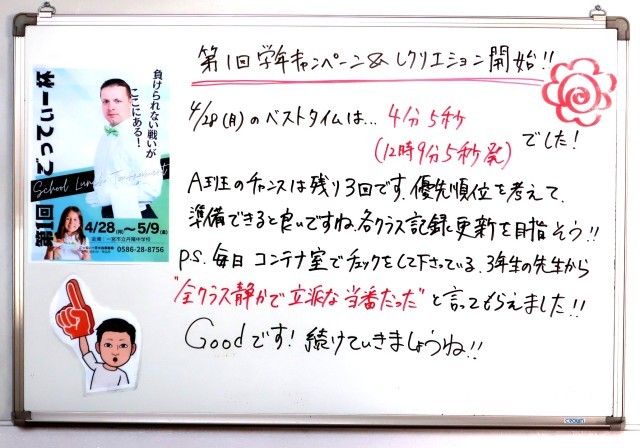 第1回学年キャンペーン&レクリエション開始!!
4/28(月)のベストタイムは… 4分5秒
(12時9分5秒発)
でした!
A班のチャンスは残り3回です。優先順位を考えて、
準備できると良いですね。各クラス記録と更新を目指そう!!
P.S. 毎日コンテナ室でチェックをして下さっている、3年生の先生から
"全クラス静かで立派な当番だった"と言ってもらえました!!
Goodです!続けていきましょうね!!
負けられない戦いが
ここにある!
第1回
School Lunch Tournament
4/28(月)〜5/9(金)
会場:一宮市立丹陽中学校
0586-28-8756
crown